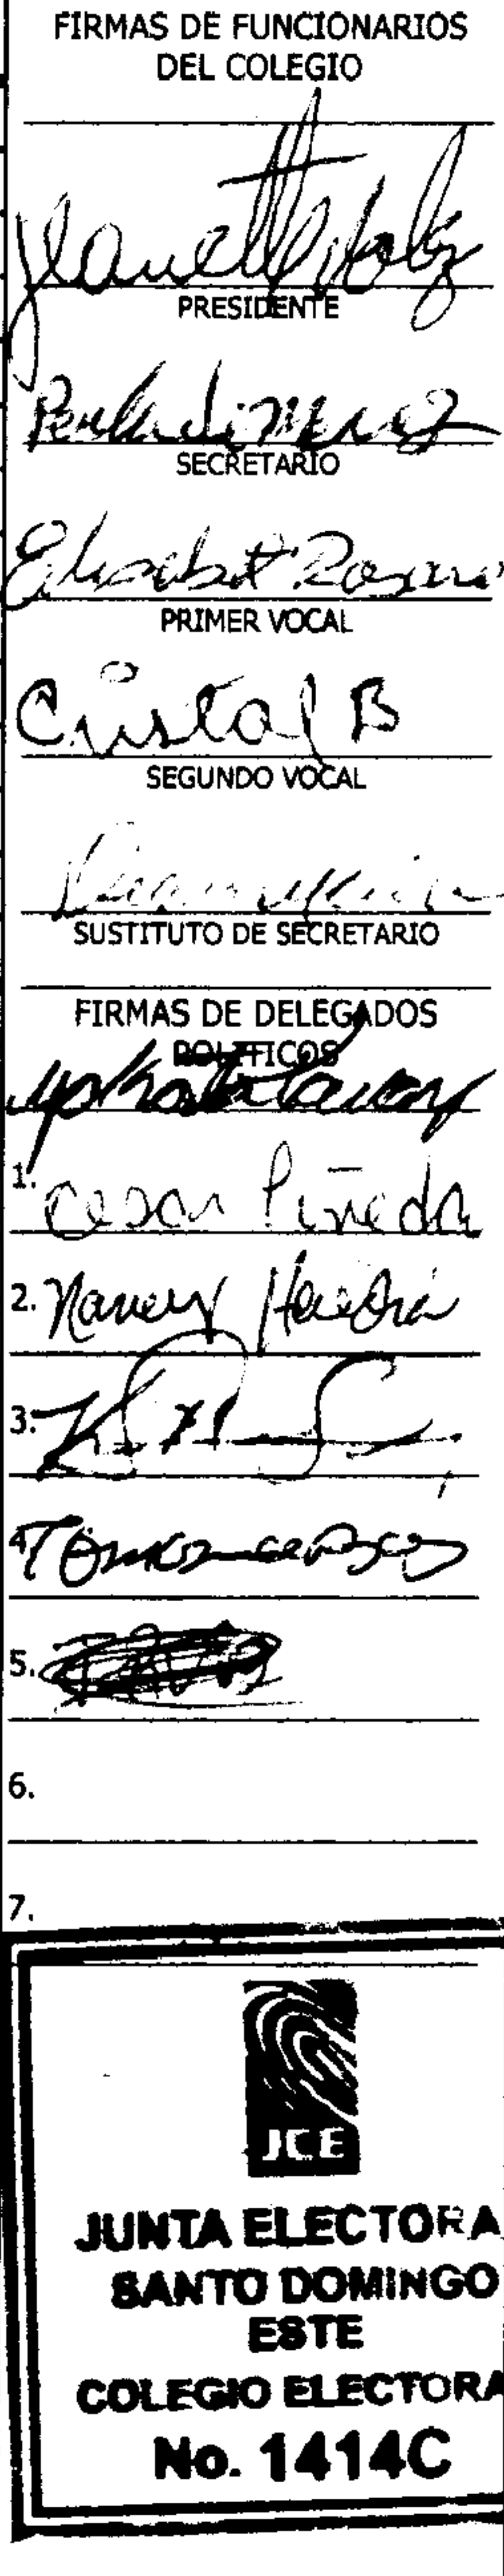 FIRMAS DE FUNCIONARIOS
DEL COLEGIO
Jeanett
PRESIDENTE
SECRETARIO
Elisabet Rosario
PRIMER VOCAL
Cristal B
SEGUNDO VOCAL
SUSTITUTO DE SECRETARIO
FIRMAS DE DELEGADOS
POLITICOS
1. Cesar Piñeda
2. Nancy Heredia
3.
4.
5.
6.
7.
JCE
JUNTA ELECTORA
SANTO DOMINGO
ESTE
COLEGIO ELECTORA
No. 1414C